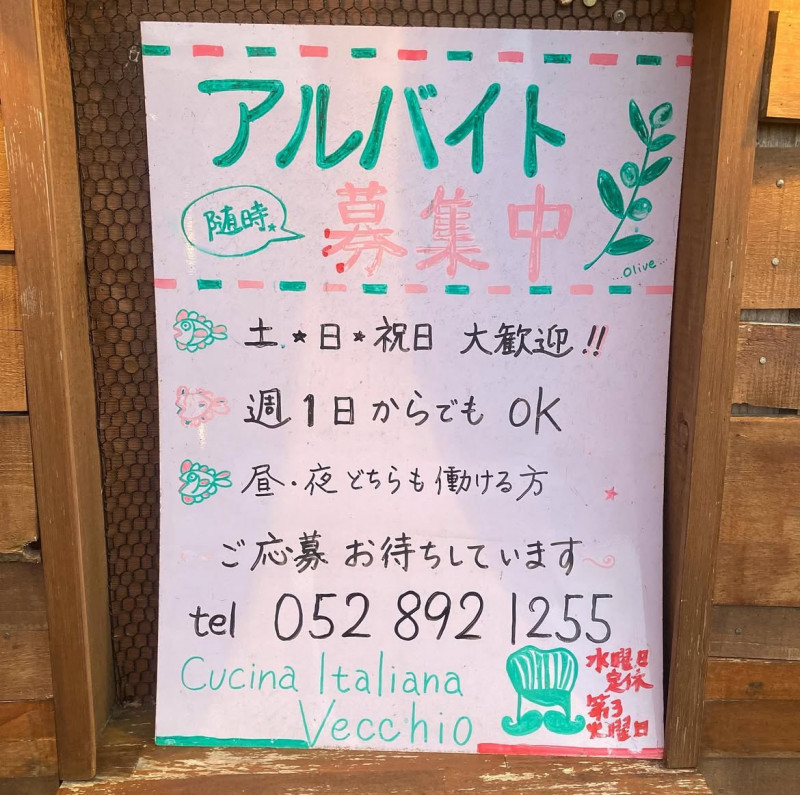 アルバイト
随時
募集中
...olive...
土.★日★祝日 大歓迎!!
週1日からでも OK
昼・夜どちらも働ける方
ご応募お待ちしています〜
tel 052 892 1255
Cucina Italiana
Vecchio
水曜日
定休
第3
火曜日